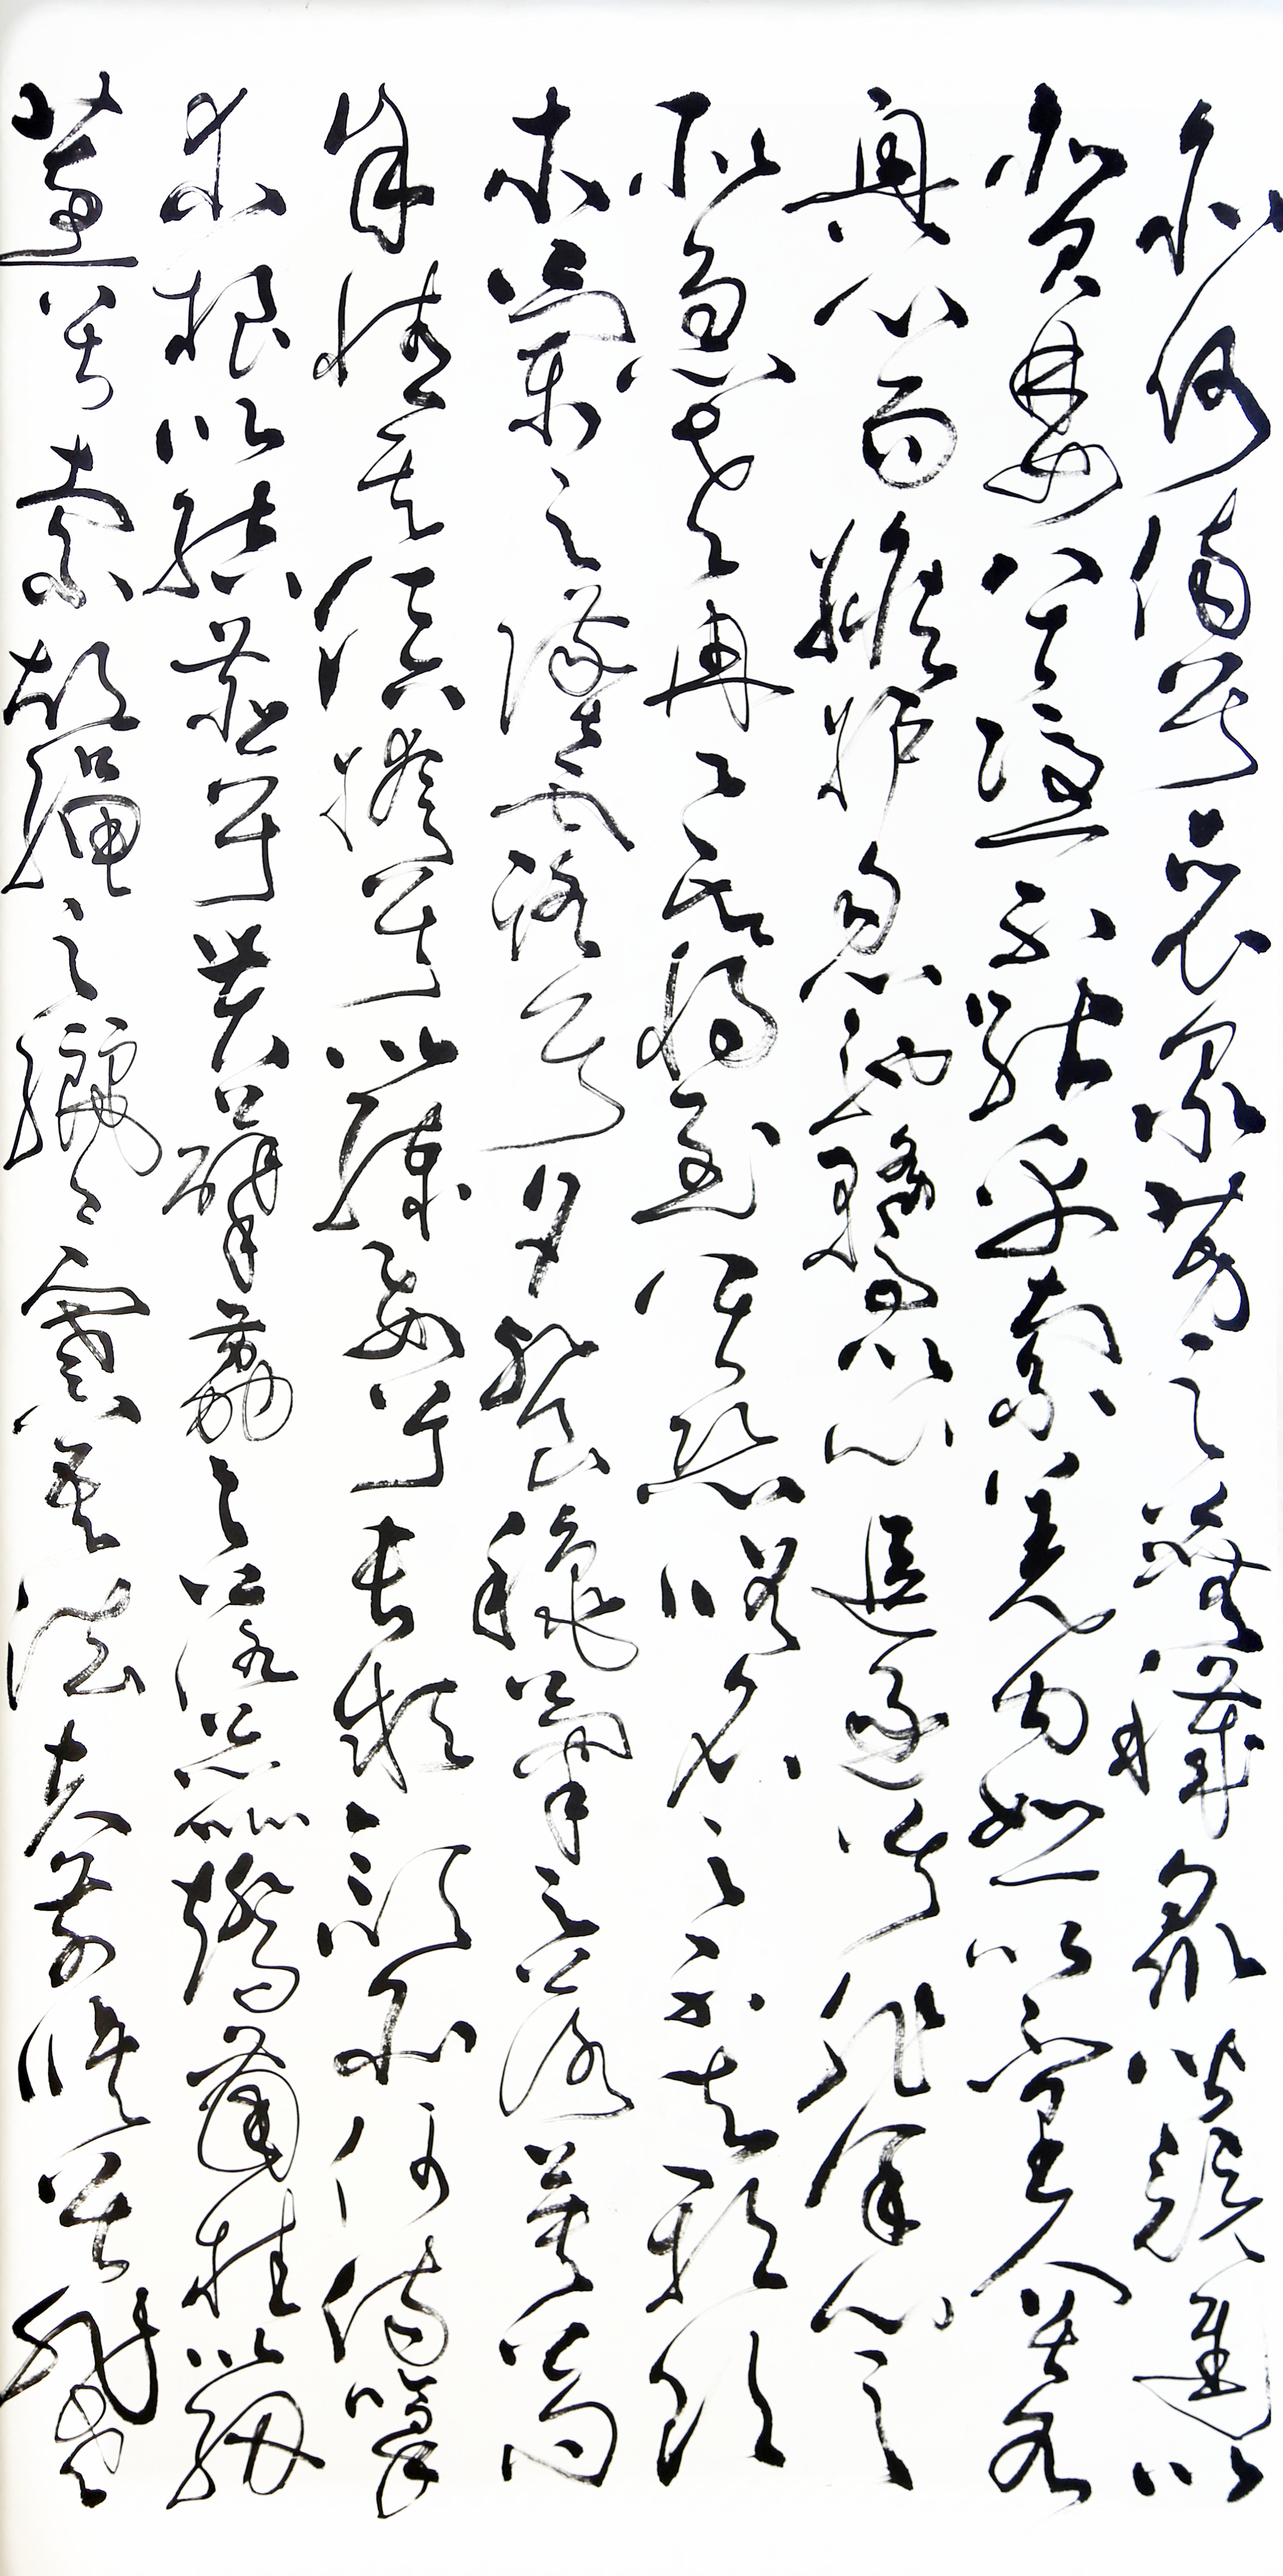 亦何傷兮哀衆芳之蕪穢衆皆競進以
貪婪兮憑不猒乎索羌内恕以量人兮各
興心而嫉妒忽馳騖以追逐兮非余心之
所急老冉々其將至兮恐脩名之不立朝飲
木蘭之墜露兮夕餐秋菊之落英苟
余情其信姱兮以練要兮長顑頷亦何傷擥
木根以結茝兮貫薜荔之落蕊矯菌桂以紉
蕙兮索胡繩之纚々謇吾法夫前脩兮非世